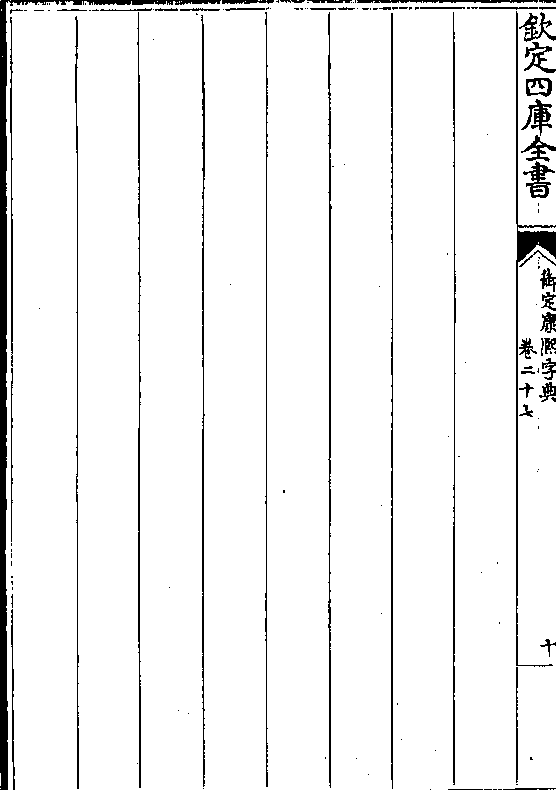 欽定四庫全書
御定康熙字典
卷二十七
十